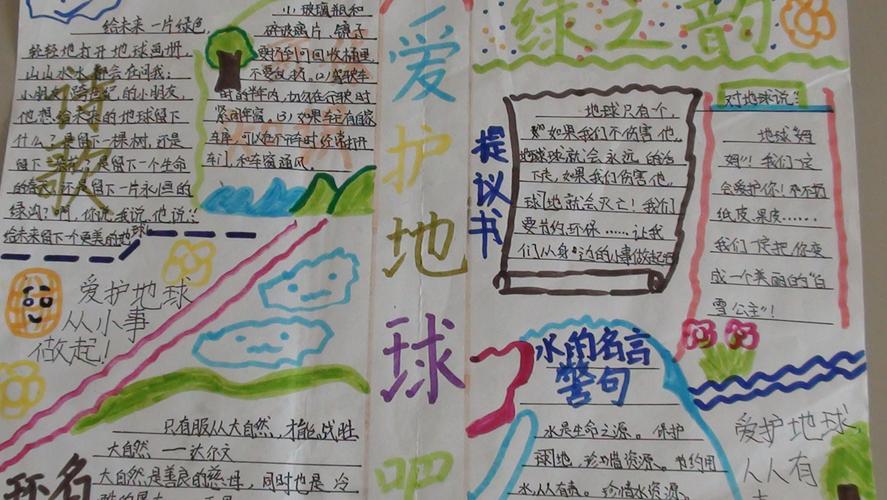 给未来一片绿色
轻轻地打开地球画册,
山山水水都会在问我:
小朋友,跨世纪的小朋友,
他想给未来的地球留下
什么?是留下一棵树,还是
留下一朵花,是留下一个生命
还是留下一片永恒的
绿洲?啊,你说我说他说:
给未来留下个更美的地球!
诗歌
小玻璃瓶和
碎玻璃片、镜子
要扔到可回收桶里,
不要乱扔。(2)驾驶车
时的车内,切勿在行驶时
紧闭车窗。(3)如果车已有暖
车库,可以在不下车时经常打开
车门和车窗通风。
爱护地球吧
绿之韵
提议书
地球只有个,
如果我们不伤害他,
地球就会永远的活
下去,如果我们伤害他,
球地就会灭亡!我们
要节约环保……让我
们从身边的小事做起吧
对地球说:
地球“姆
姆”!我们一定
会爱护你!不乱扔
纸皮、果皮……
我们一定把你变
成一个美丽的“白
雪公主”!
爱护地球
从小事
做起!
只有服从大自然,才能战胜
大自然 ——达尔文
大自然是善良的慈母,同时也是冷
环名
水的名言
警句
水是生命之源。保护
球地,珍惜资源。节约用
水从人有责。珍惜水资源。
爱护地球,
人人有